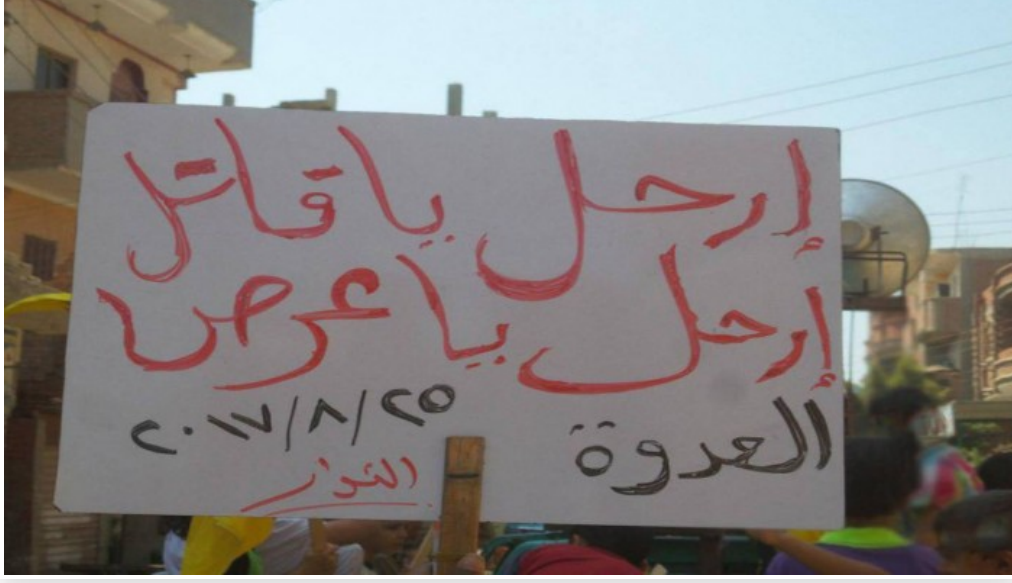 إرحل يا قاتل
إرحل يا عرص
العدوة ٢٠١٧/٨/٢٥
الثوار